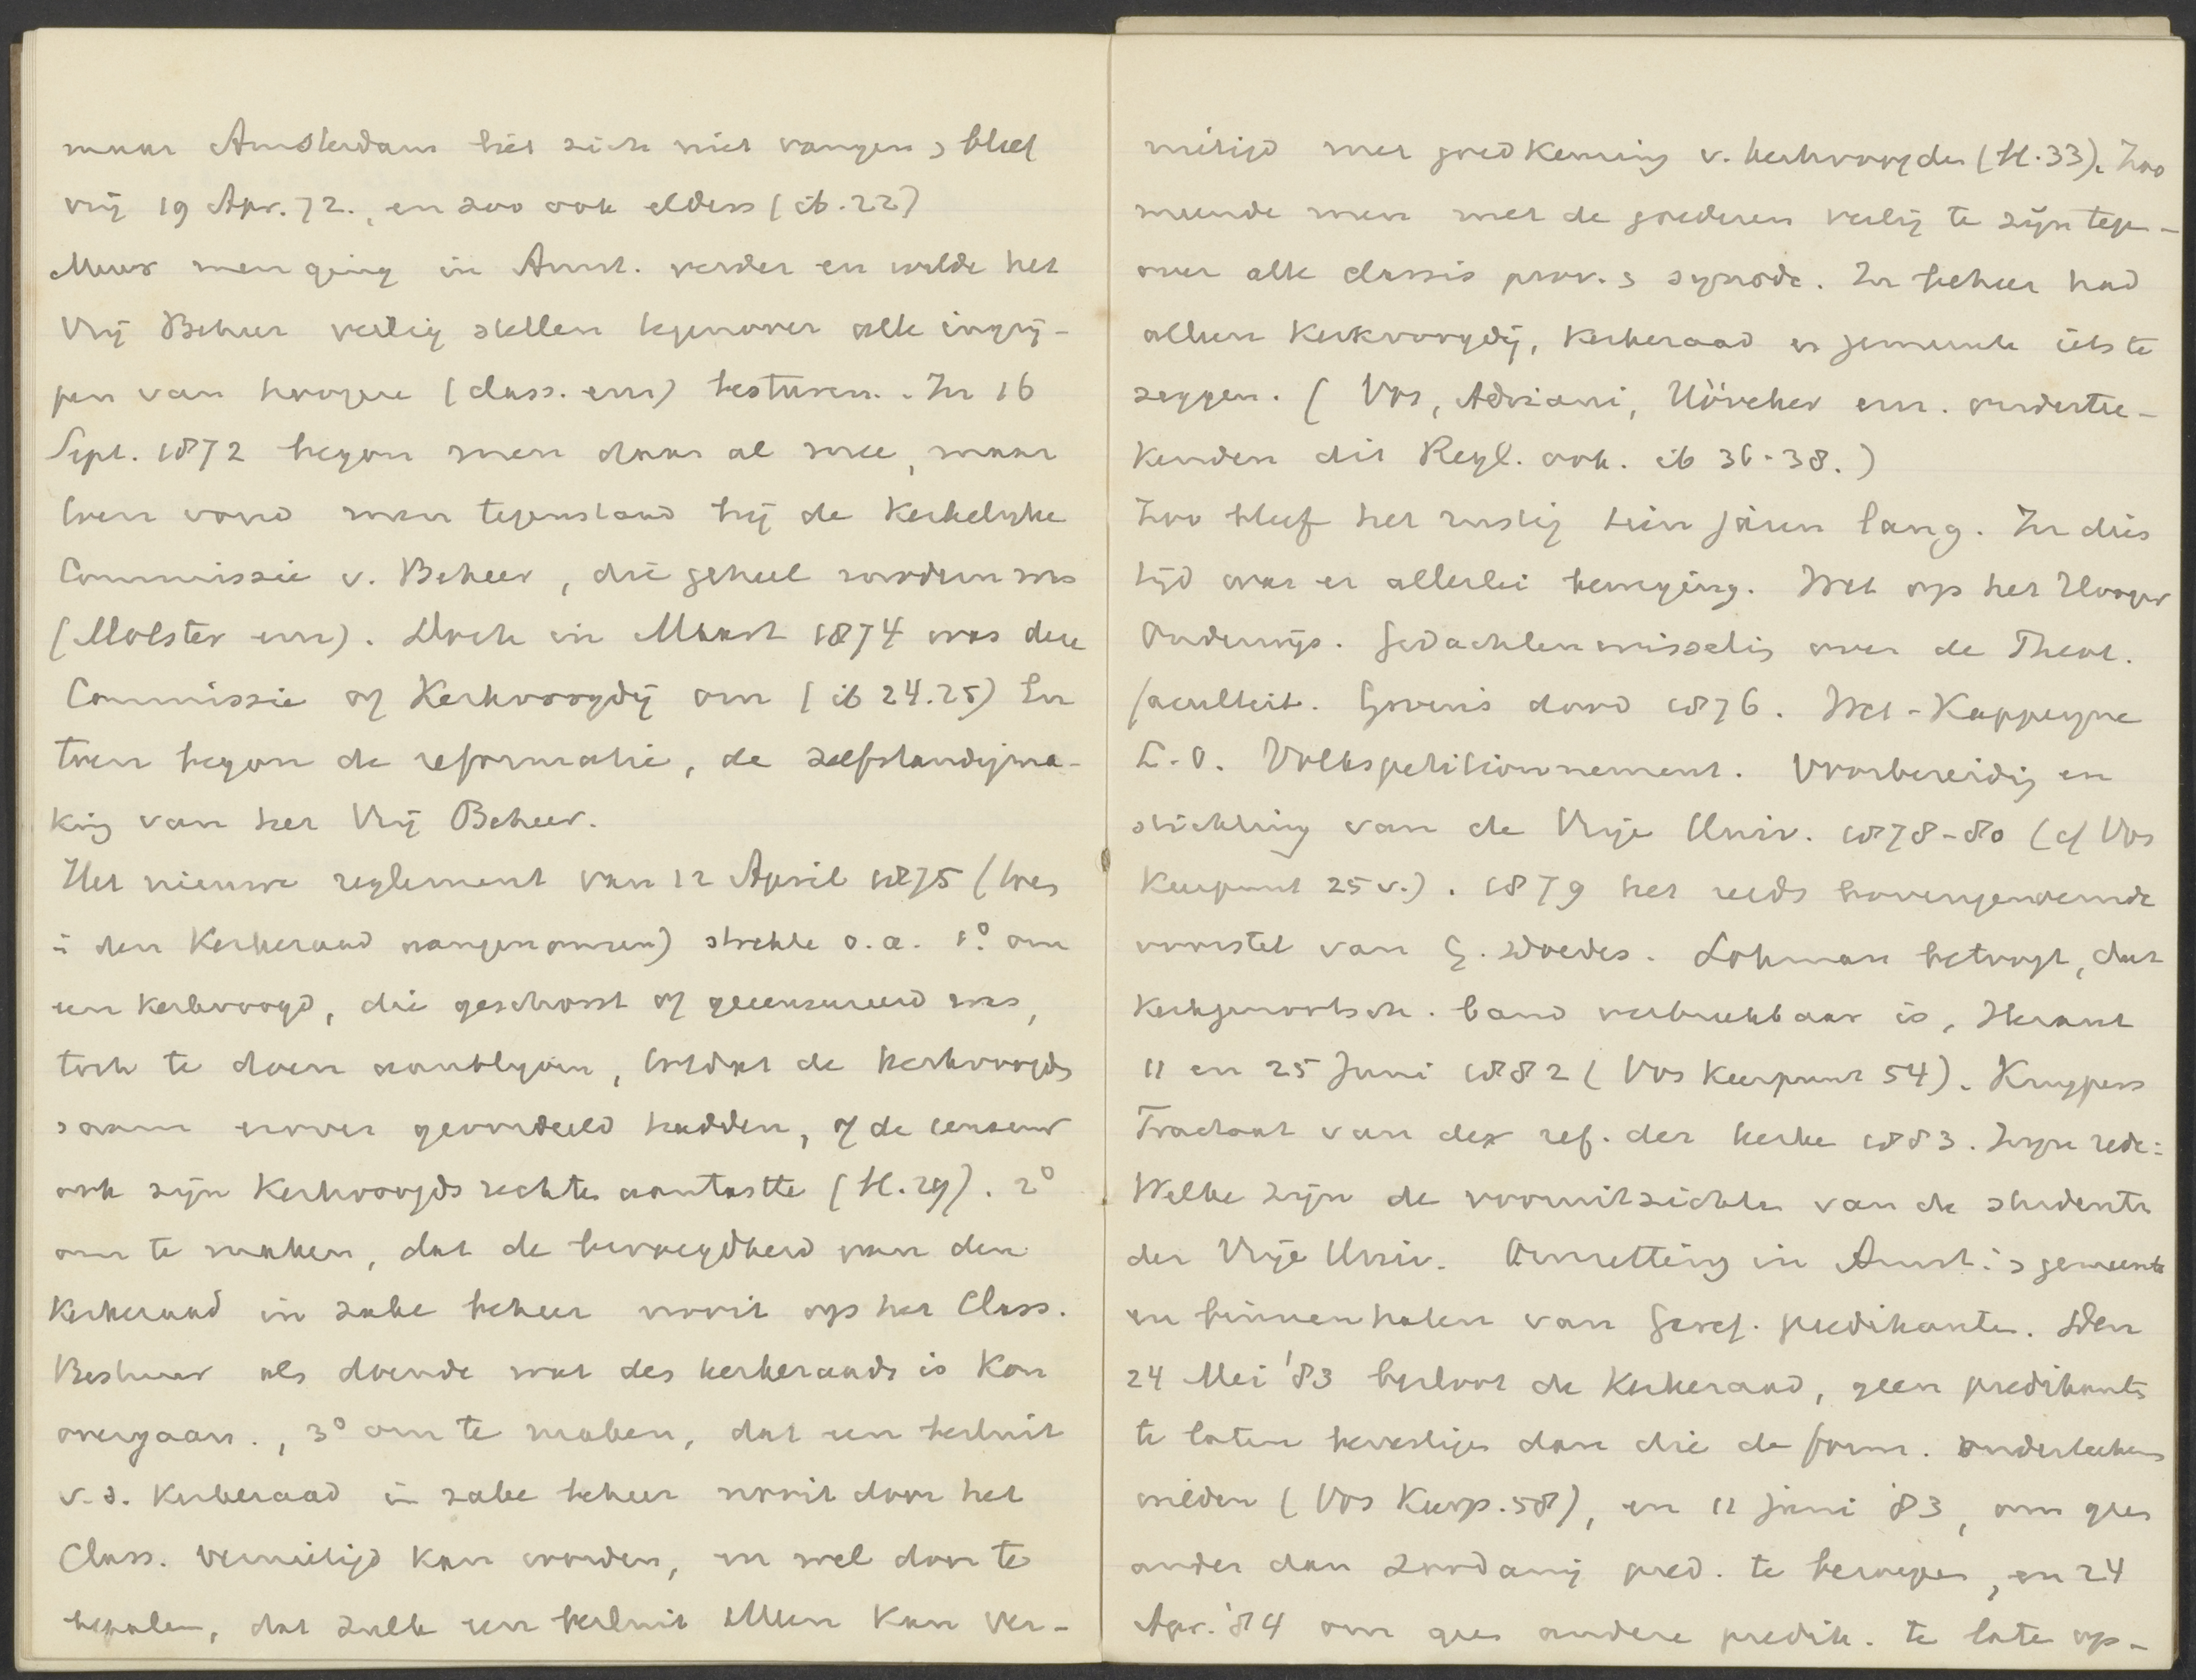 maar Amsterdam liet zich niet vangen, bleef
vrij 19 Apr. 72., en zoo ook elders (ib. 22)
Maar men ging in Amst. verder en wilde het
Vrij Beheer veilig stellen tegenover alle ingrij-
pen van hoogere (class. enz) besturen. In 16
Sept. 1872 begon men daar al mee, maar
toen vond men tegenstand bij de Kerkelijke
Commissie v. Beheer, die geheel modern was
(Molster enz). Doch in Maart 1874 was deze
Commissie of Kerkvoogdij om (ib 24.25) En
toen begon de reformatie, de zelfstandigma-
king van het Vrij Beheer.
Het nieuwe reglement van 12 April 1875 (toen
i den Kerkeraad aangenomen) strekte o.a. 1° om
een Kerkvoogd, die geschorst of gecensureerd was,
toch te doen aanblijven, totdat de Kerkvoogds
saam erover geoordeeld hadden, of de censuur
ook zijn Kerkvoogdsrechten aantastte (bl. 29). 2°
om te maken, dat de bevoegdheid van den
Kerkeraad in zake beheer nooit op het Class.
Bestuur als doende wat des kerkeraads is kon
overgaan., 3° om te maken, dat een besluit
v.d. Kerkeraad in zake beheer nooit door het
Class. vernietigd kan worden, en wel door te
bepalen, dat zulk een besluit alleen kan ver-
nietigd met goedkeuring v. kerkvoogden (bl. 33). Zoo
meende men met de goederen veilig te zijn tegen-
over alle classis prov. s synode. In beheer had
alleen Kerkvoogdij, Kerkeraad en gemeente iets te
zeggen. (Vos, Adriani, Hövcker enz. onderte-
kenden dit Regl. ook. ib 36-38.)
Zoo bleef het rustig tien jaren lang. In dies
tijd was er allerlei beweging. Wet op het Hooger
Onderwijs. Gedachtenwisselig over de Theol.
faculteit. Groens dood 1876. Wet-Kappeyne
L.O. Volkspetitionnement. Voorbereidig en
stichting van de Vrije Univ. 1878-80 (cf Vos
Keerpunt 25 v.). 1879 het reeds bovengenoemde
voorstel van G. Doedes. Lohman betoogt, dat
Kerkgenootsch. band verbreekbaar is, Heraut
11 en 25 Juni 1882 (Vos Keerpunt 54). Kuypers
Tractaat van der ref. der kerke 1883. Zijn rede:
Welke zijn de vooruitzichten van de studenten
der Vrije Univ. Omzetting in Amst.'s gemeente
en binnenhalen van Geref. predikanten. Den
24 Mei '83 besloot de Kerkeraad, geen predikants
te laten bevestigen dan die de form. onderteekenen
wilden (Vos Keerp. 58), en 11 Juni '83, om geen
ander dan zoodanig pred. te beroepen, en 24
Apr. '84 om geen andere predik. te late op-